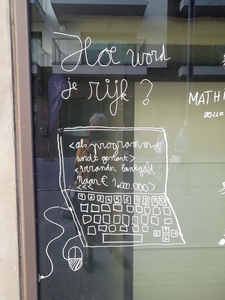 Hoe word
je rijk?
MATH
<als programma
wordt gestart>
<verander bankgeld
naar € 1.000.000>
<<<